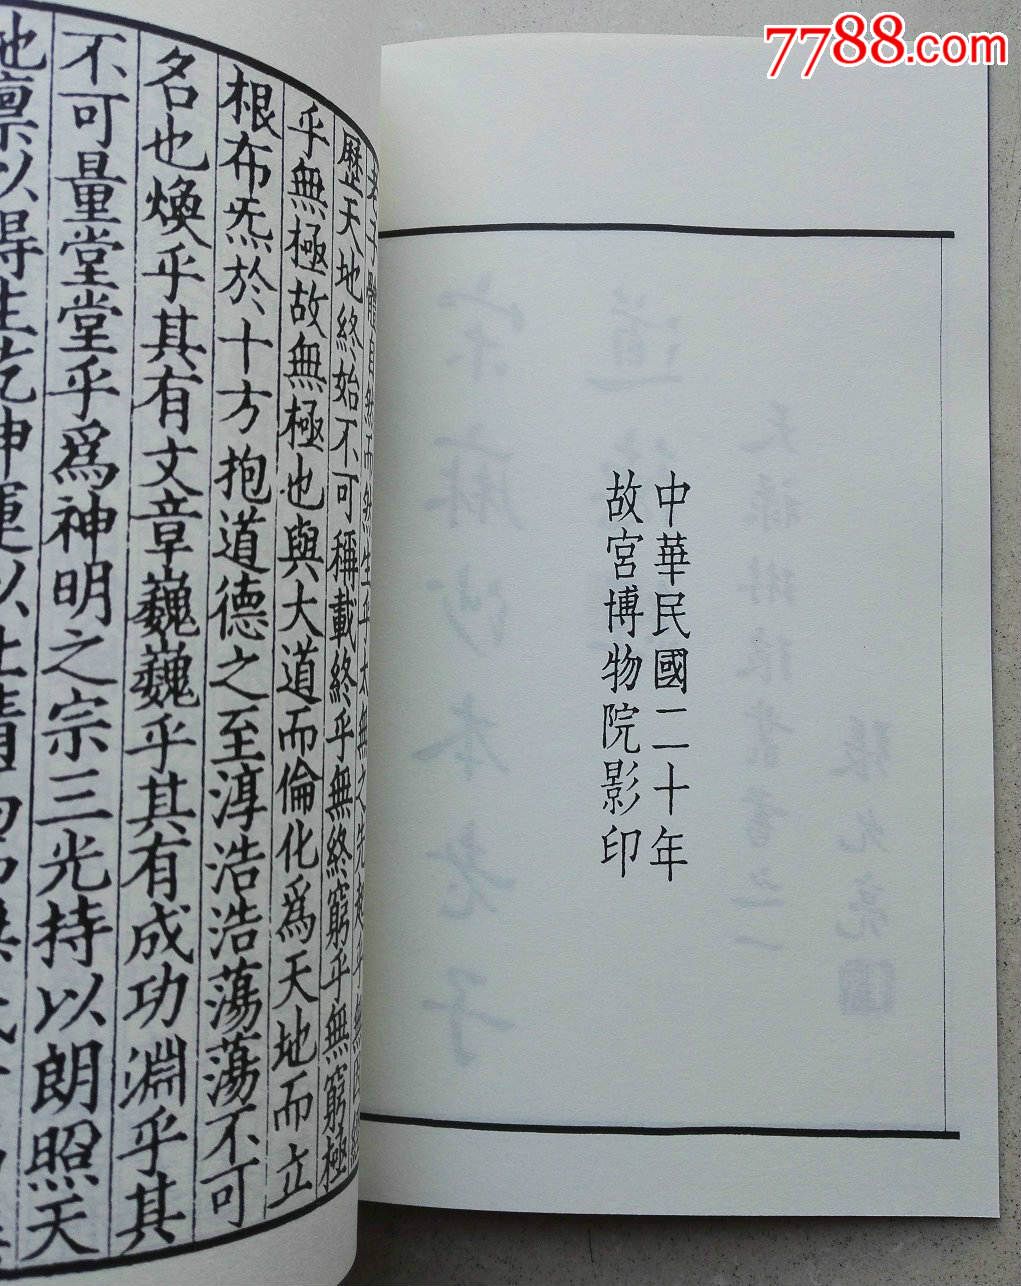 7788.com
中華民國二十年
故宮博物院影印
老子體自然而然生乎太無之先起乎無因經
歷天地終始不可稱載終乎無終窮乎無窮極
乎無極故無極也與大道而倫化爲天地而立
根布炁於十方抱道德之至淳浩浩蕩蕩不可
名也煥乎其有文章巍巍乎其有成功淵乎其
不可量堂堂乎爲神明之宗三光持以朗照天
地稟以得生乾坤運以吐精